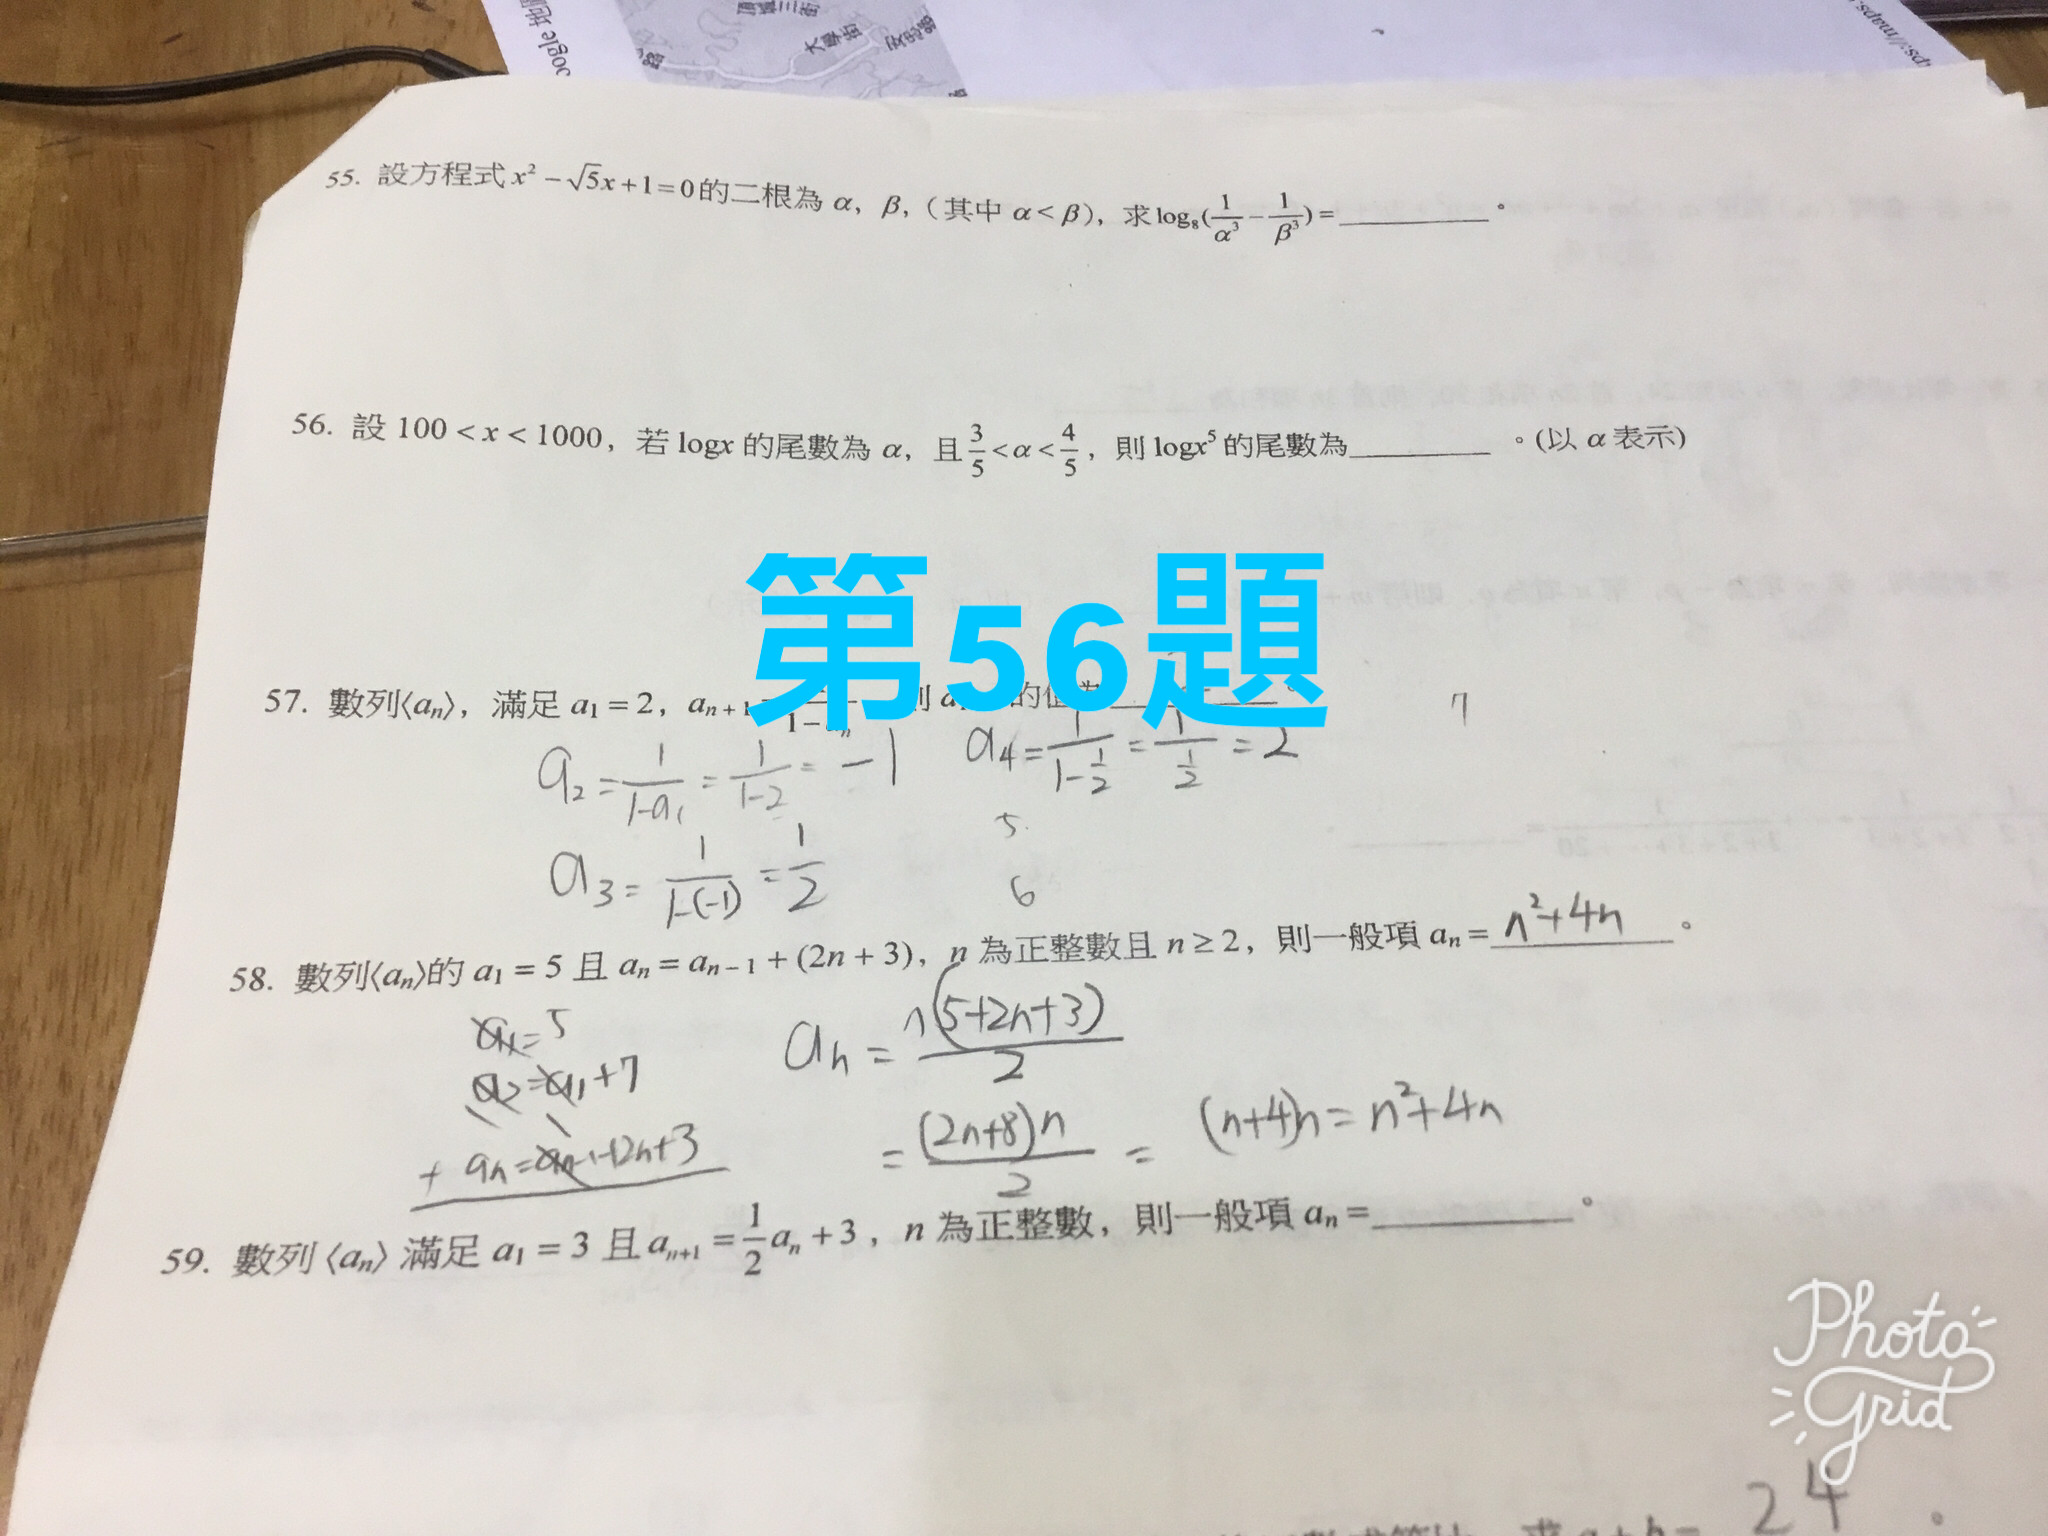 大學街
55. 設方程式 x² − √5x + 1 = 0 的二根為 α, β, (其中 α < β), 求 log₈(1/α³ − 1/β³) = ______。
56. 設 100 < x < 1000, 若 logx 的尾數為 α, 且 3/5 < α < 4/5, 則 logx⁵ 的尾數為______。(以 α 表示)
第56題
57. 數列⟨aₙ⟩, 滿足 a₁ = 2, aₙ₊₁
7
a₂ = 1/(1−a₁) = 1/(1−2) = −1
a₄ = 1/(1−1/2) = 1/(1/2) = 2
a₃ = 1/(1−(−1)) = 1/2
5
6
58. 數列⟨aₙ⟩的 a₁ = 5 且 aₙ = aₙ₋₁ + (2n + 3), n 為正整數且 n ≥ 2, 則一般項 aₙ = n²+4n。
a₁ = 5
a₂ = a₁ + 7
+ aₙ = aₙ₋₁+2n+3
aₙ = n(5+2n+3)/2
= (2n+8)n/2 = (n+4)n = n²+4n
59. 數列 ⟨aₙ⟩ 滿足 a₁ = 3 且 aₙ₊₁ = 1/2 aₙ + 3, n 為正整數, 則一般項 aₙ = ______。
Photo
Grid
24